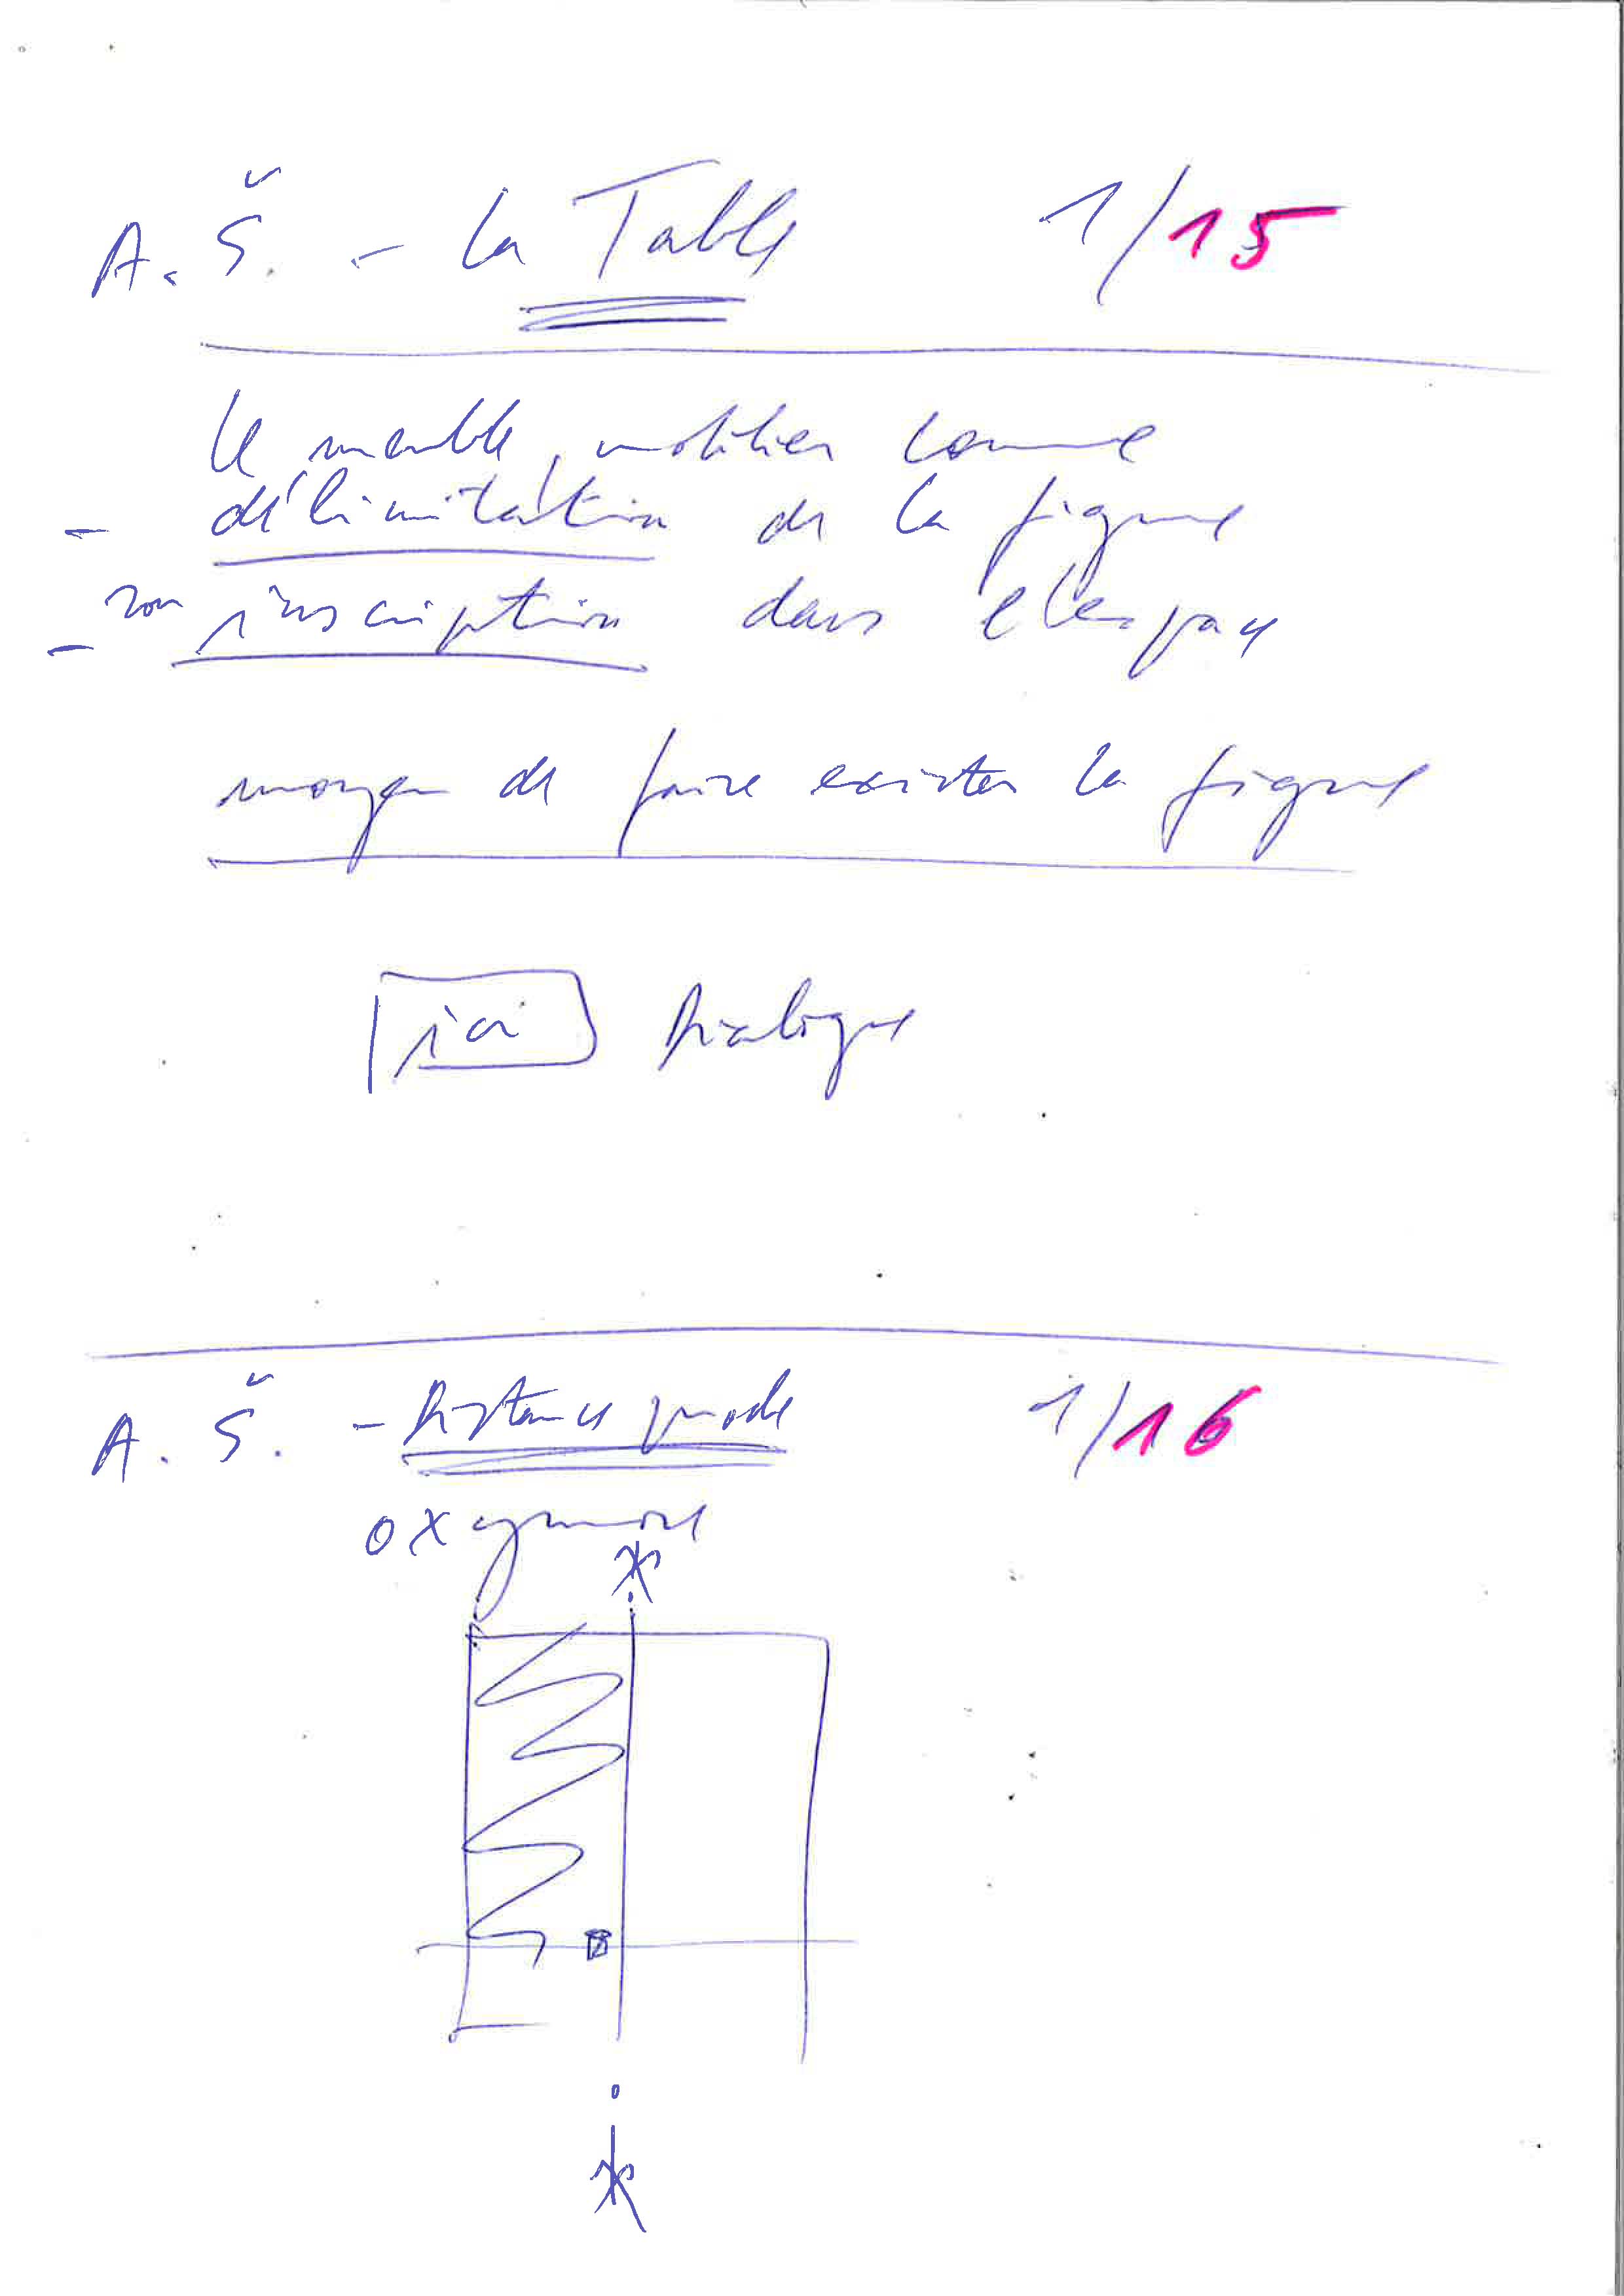 A. Š. - La Table 1/15
Le meuble, mobilier comme
- délimitation de la figure
- son inscription dans l'espace
moyen de faire exister la figure
ici Dialogue
A. Š. - Distance 1/16
oxymore